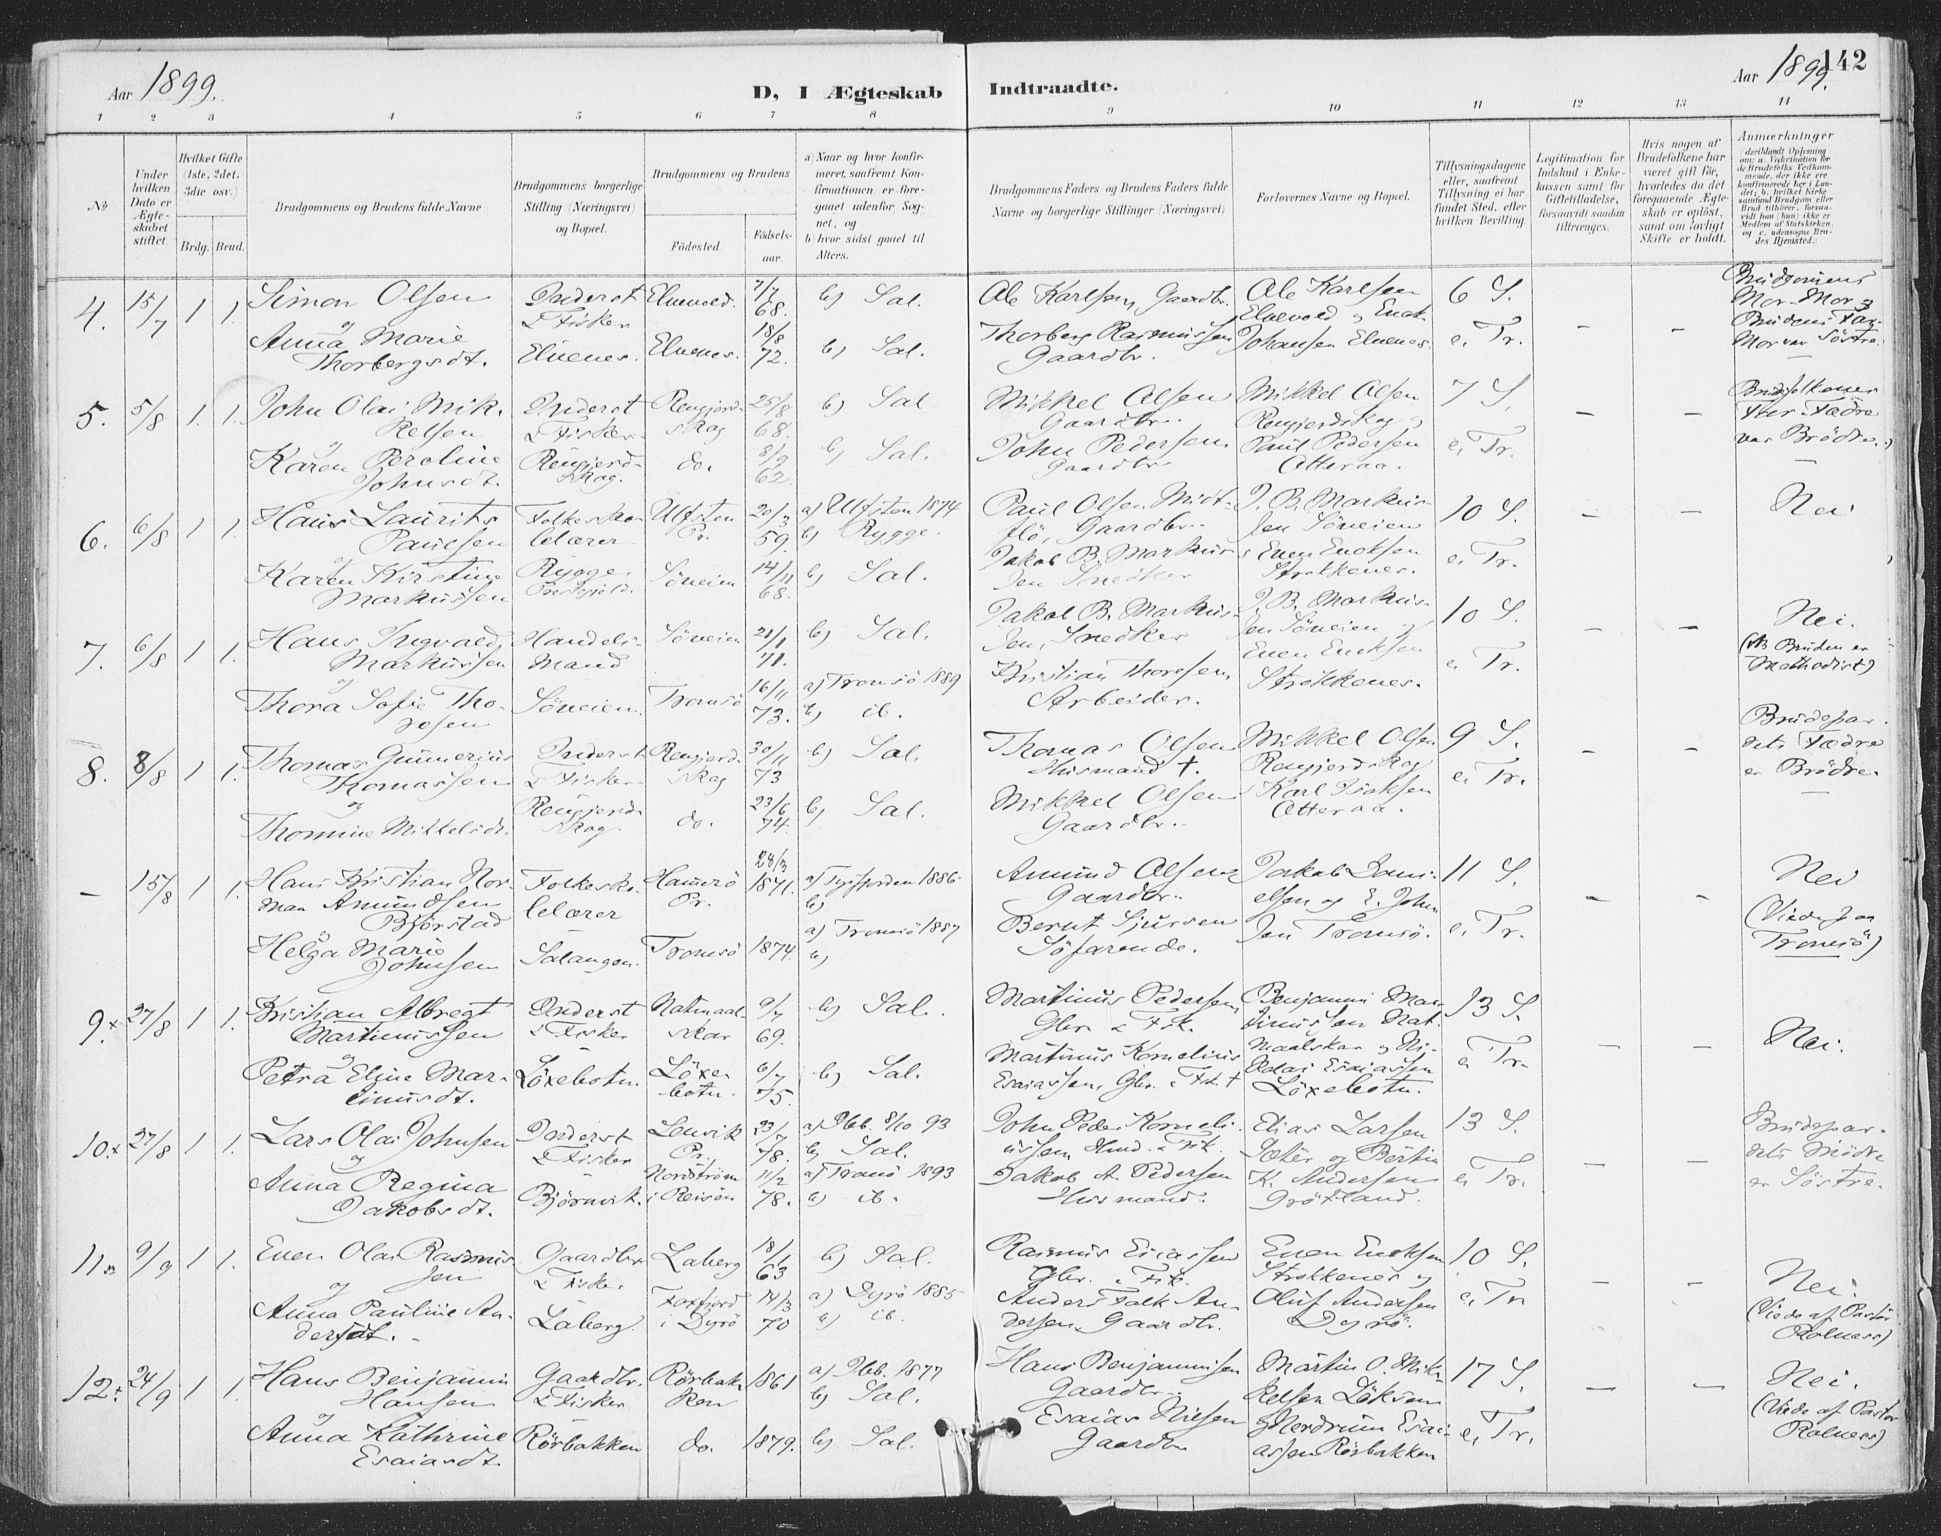 Aar 1899.
D, I Ægteskab Indtraadte.
Aar 1899. 142
1 2 3 4 5 6 7 8 9 10 11 12 13 14
No
Under hvilken Dato er Ægteskabet stiftet.
Hvilket Gifte (1ste, 2det, 3die osv.)
Brdg. Brud.
Brudgommens og Brudens fulde Navne
Brudgommens borgerlige Stilling (Næringsvei) og Bopæl.
Brudgommens og Brudens
Fødested.
Fødselsaar.
a) Naar og hvor konfirmeret, saafremt Konfirmationen er foregaaet udenfor Sognet, og
b) hvor sidst gaaet til Alters.
Brudgommens Faders og Brudens Faders fulde Navne og borgerlige Stillinger (Næringsvei)
Forlovernes Navne og Bopæl.
Tillysningsdagene eller, saafremt Tillysning ei har fundet Sted, efter hvilken Bevilling
Legitimation for Indskud i Enkekassen samt for Giftetilladelse, forsaavidt saadan tiltrænges.
Hvis nogen af Brudefolkene har været gift før, hvorledes da det foregaaende Ægteskab er opløst, samt om lovligt Skifte er holdt.
Anmærkninger
4. 15/7 1 1. Simon Olsen og Anna Marie Thorbergsdt.
Inderst & Fisker Elvenes.
Elvevold. 7/7 68. b) Sal.
Elvenes. 18/8 72. b) Sal.
Ole Karlsen, Gaardbr.
Thorberg Rasmussen Gaardbr.
Ole Karlsen Elvevold og Enok Johansen Elvenes.
6 S. e. Tr. – –
Brudgomens Mor-Mor og Brudens Far-Mor var Søstre.
5. 5/8 1. 1. John Olai Mikkelsen og Karen Peroline Johnsdt.
Inderst & Fisker Rengjerdskog.
Rengjerdskog 25/8 68. b) Sal
do. 8/9 62. b) Sal.
Mikkel Olsen Gaardbr.
John Pedersen Gaardbr.
Mikkel Olsen Rengjerdskog og Paul Pedersen Otteraa.
7 S. e. Tr. – –
var Brødre.
6. 6/8 1 1. Hans Laurits Paulsen og Karen Kirstine Markussen
Folkeskolelærer Rygge
Ulfsten Pr. 20/3 59. a) Ulfsten 1874 b) Rygge.
Søveien 14/11 68. b) Sal.
Paul Olsen Midtflø, Gaardbr.
Jakob B. Markussen Snedker
J. B. Markussen Søveien Even Enoksen Strokkenes.
10 S. e. Tr. – –
Nei
7. 6/8 1 1. Hans Ingvald Markussen og Thora Sofie Thoresen
Handelsmand Søveien.
Søveien 21/1 71. b) Sal.
Tromsø 16/11 73. a) Tromsø 1889 b) ib.
Jakob B. Markussen, Snedker
Kristian Thoresen, Arbeider.
J. B. Markussen Søveien og Even Enoksen Strokkenes.
10 S. e. Tr. – –
Nei.
(NB Bruden er Methodist)
8. 8/8 1 1. Thomas Gunnerius Thomassen og Thomine Mikkelsdt.
Inderst & Fisker Rengjerdskog.
Rengjerdskog 30/11 73 b) Sal.
do. 23/6 74. b) Sal.
Thomas Olsen Husmand †.
Mikkel Olsen Gaardbr.
Mikkel Olsen Rengjerdskog & Karl Isaksen Otteraa.
9 S. e. Tr. – –
Brudeparrets Fædre er Brødre.
– 15/8 1 1. Hans Kristian Norman Amundsen Bjørstad og Helga Marie Johnsen
Folkeskolelærer Salangen.
Hamerø Pr. 28/3 1871. a) Tysfjorden 1886. b)
Tromsø 1874. a) Tromsø 1887 b)
Amund Olsen Gaardbr.
Bernt Sjursen Søfarende.
Jakob Danielsen og E. Johnsen Tromsø.
11 S. e. Tr. – –
Nei
(Viede paa Tromsø)
9.x 27/8 1 1. Kristian Albregt Martinussen og Petra Eline Martinusdt.
Inderst & Fisker Løxebotn.
Natmaalskar 9/7 69. b) Sal.
Løxebotn. 6/7 75. b) Sal.
Martinus Pedersen, Gbr. & Fisk.
Martinus Kornelius Esaiassen, Gbr. & Fisk. †
Benjamin Martinussen Natmaalskar og Nikolai Esaiassen Løxebotn.
13 S. e. Tr. – –
Nei.
10.x 27/8 1 1. Lars Olai Johnsen og Anna Regina Jakobsdt.
Inderst & Fisker Bjørnvik.
Lenvik Pr. 23/7 78. a) Ibb. 8/10 93 b) Sal.
Nordstrøm i Reisen 11/2 78. a) Tromsø 1893 b) ib.
John Peder Korneliussen Husmd. & Fisk.
Jakob A. Pedersen Husmand.
Elias Larsen Sæter og Bertin K. Andersen Grøtland.
13 S. e. Tr. – –
Brudeparrets Mødre er Søstre.
11.x 9/9 1 1. Even Olai Rasmussen og Anna Pauline Andersdt.
Gaardbr. & Fisker Laberg.
Laberg 18/1 63 b) Sal.
Foxfjord i Dyrø 14/3 70 a) Dyrø 1885 b) ib.
Rasmus Eliassen Gbr. & Fisk.
Anders Falk Andersen, Gaardbr.
Even Enoksen Strokkenes og Oluf Andersen Dyrø.
10 S. e. Tr – –
Nei.
(Viede af Pastor Rolness)
12.x 24/9 1 1. Hans Benjamin Hansen og Anna Kathrine Esaiasdt.
Gaardbr. & Fisker Rørbakken
Rørbakken 1861 a) Ibb. 1877 b) Sal.
do. 1879. b) Sal.
Hans Benjaminsen Gaardbr.
Esaias Nilsen Gaardbr
Martin O. Mikkelsen Løksen og Nerdrum Esaiassen Rørbakken
17 S. e. Tr. – –
Nei.
(Viede af Pastor Rolness)